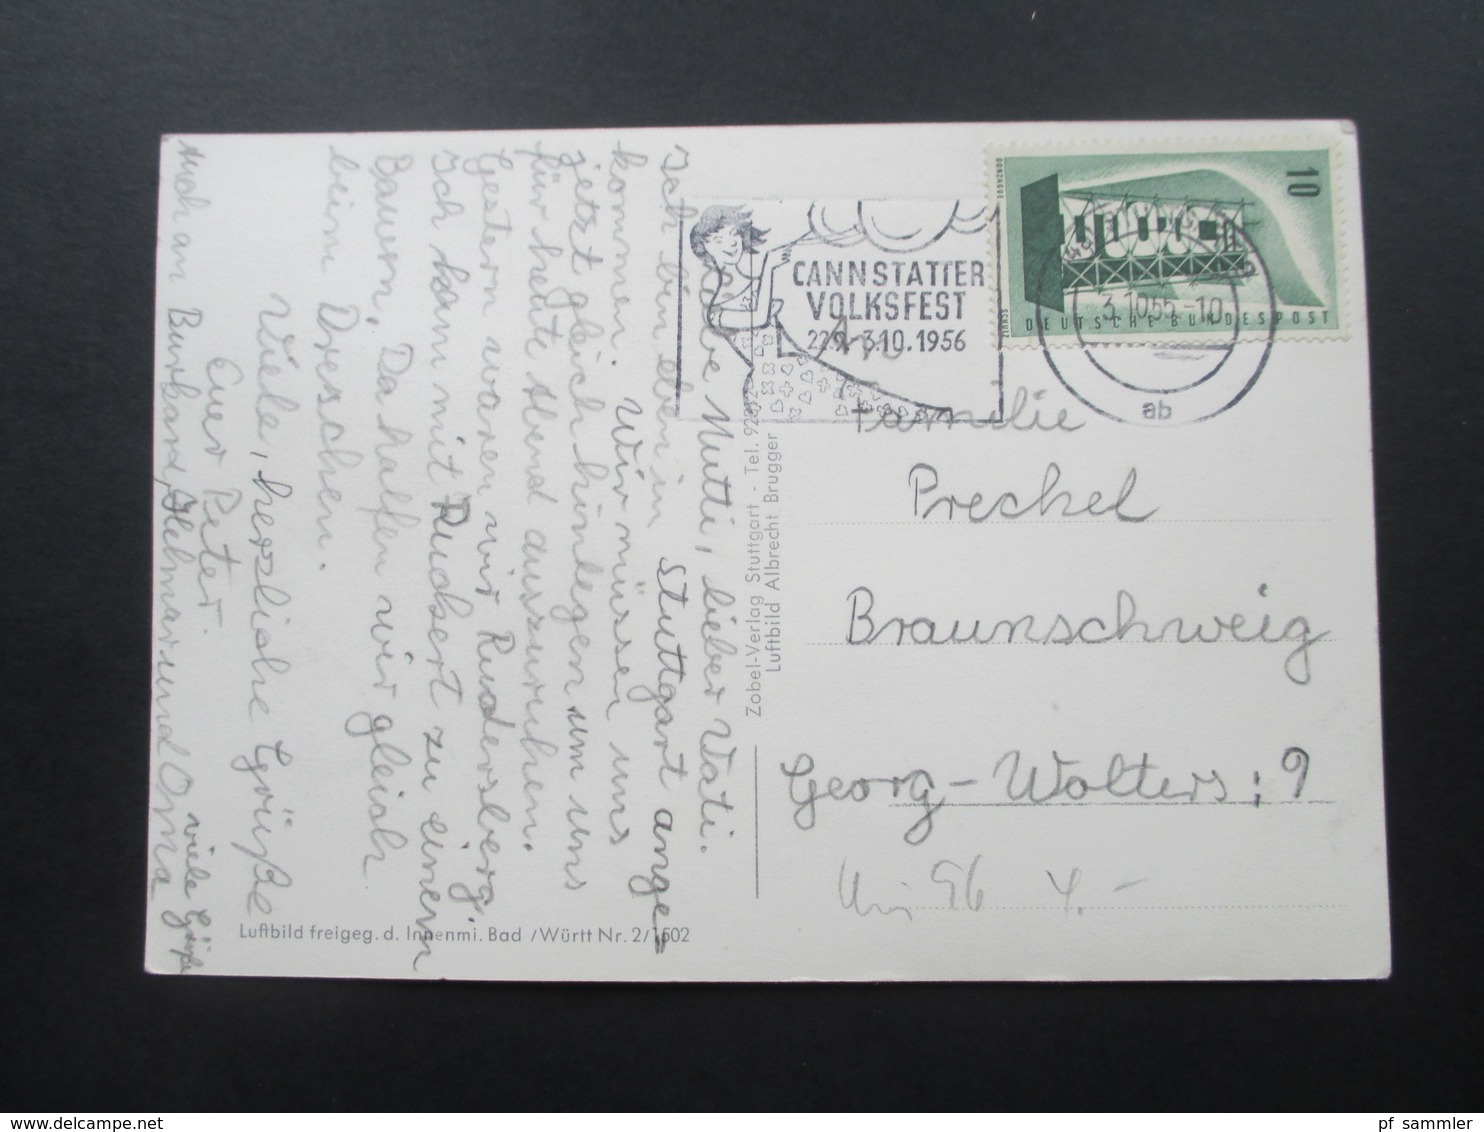 Liebe Mutti, lieber Vati.
Ich bin eben in Stuttgart ange=
kommen. Wir müssen uns
jetzt gleich hinlegen um uns
für heute Abend auszuruhen.
Gestern waren wir Rudersberg.
Ich kam mit Rudbert zu einem
Bauern, Da halfen wir gleich
beim Dreschen.
Viele, herzliche Grüße
Euer Peter.
Auch an Burkard, Helmar und Oma
viele Grüße
CANNSTATTER
VOLKSFEST
22.9.-3.10.1956
3.10.56-10
ab
10
DEUTSCHE BUNDESPOST
GONZAGUE
SCHULTZ
An
Familie
Prechel
Braunschweig
Georg-Wolters: 9
Zobel-Verlag Stuttgart - Tel. 92812
Luftbild Albrecht Brugger
Luftbild freigeg. d. Innenmi. Bad /Württ Nr. 2/1502
Mi 96 4.-
pf_sammler